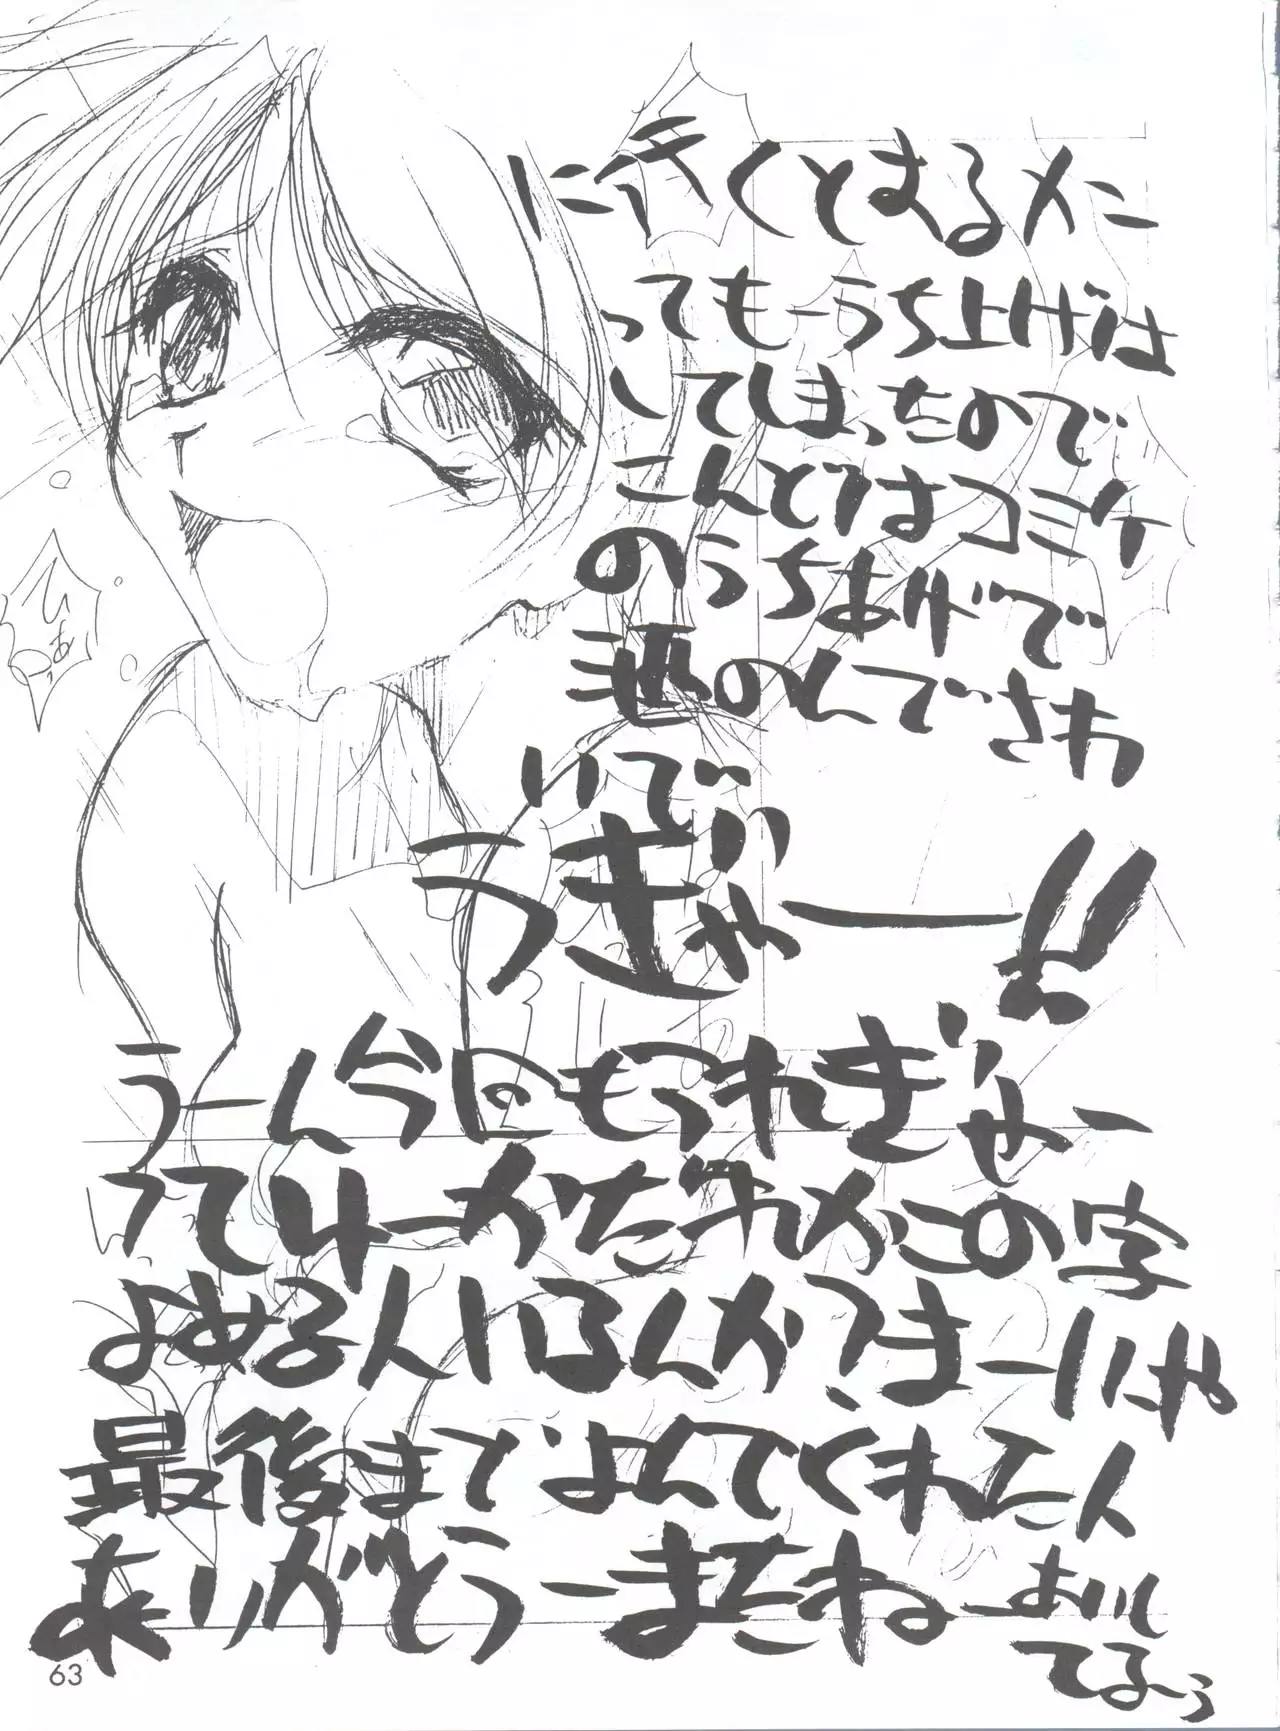 に行くとまるメニ
ってもーうち上げは
してしまったので
こんどはコミケ
のうちあげで
酒のんでさわ
いで
うぎゃー!!
うーん今回もつれぎゃー
ってゆーかだれかこの字
よめる人いるんか?まーいいや
最後までよんでくれた人
ありがとうーまたねーあいし
てるぅ
ひぁっ
63